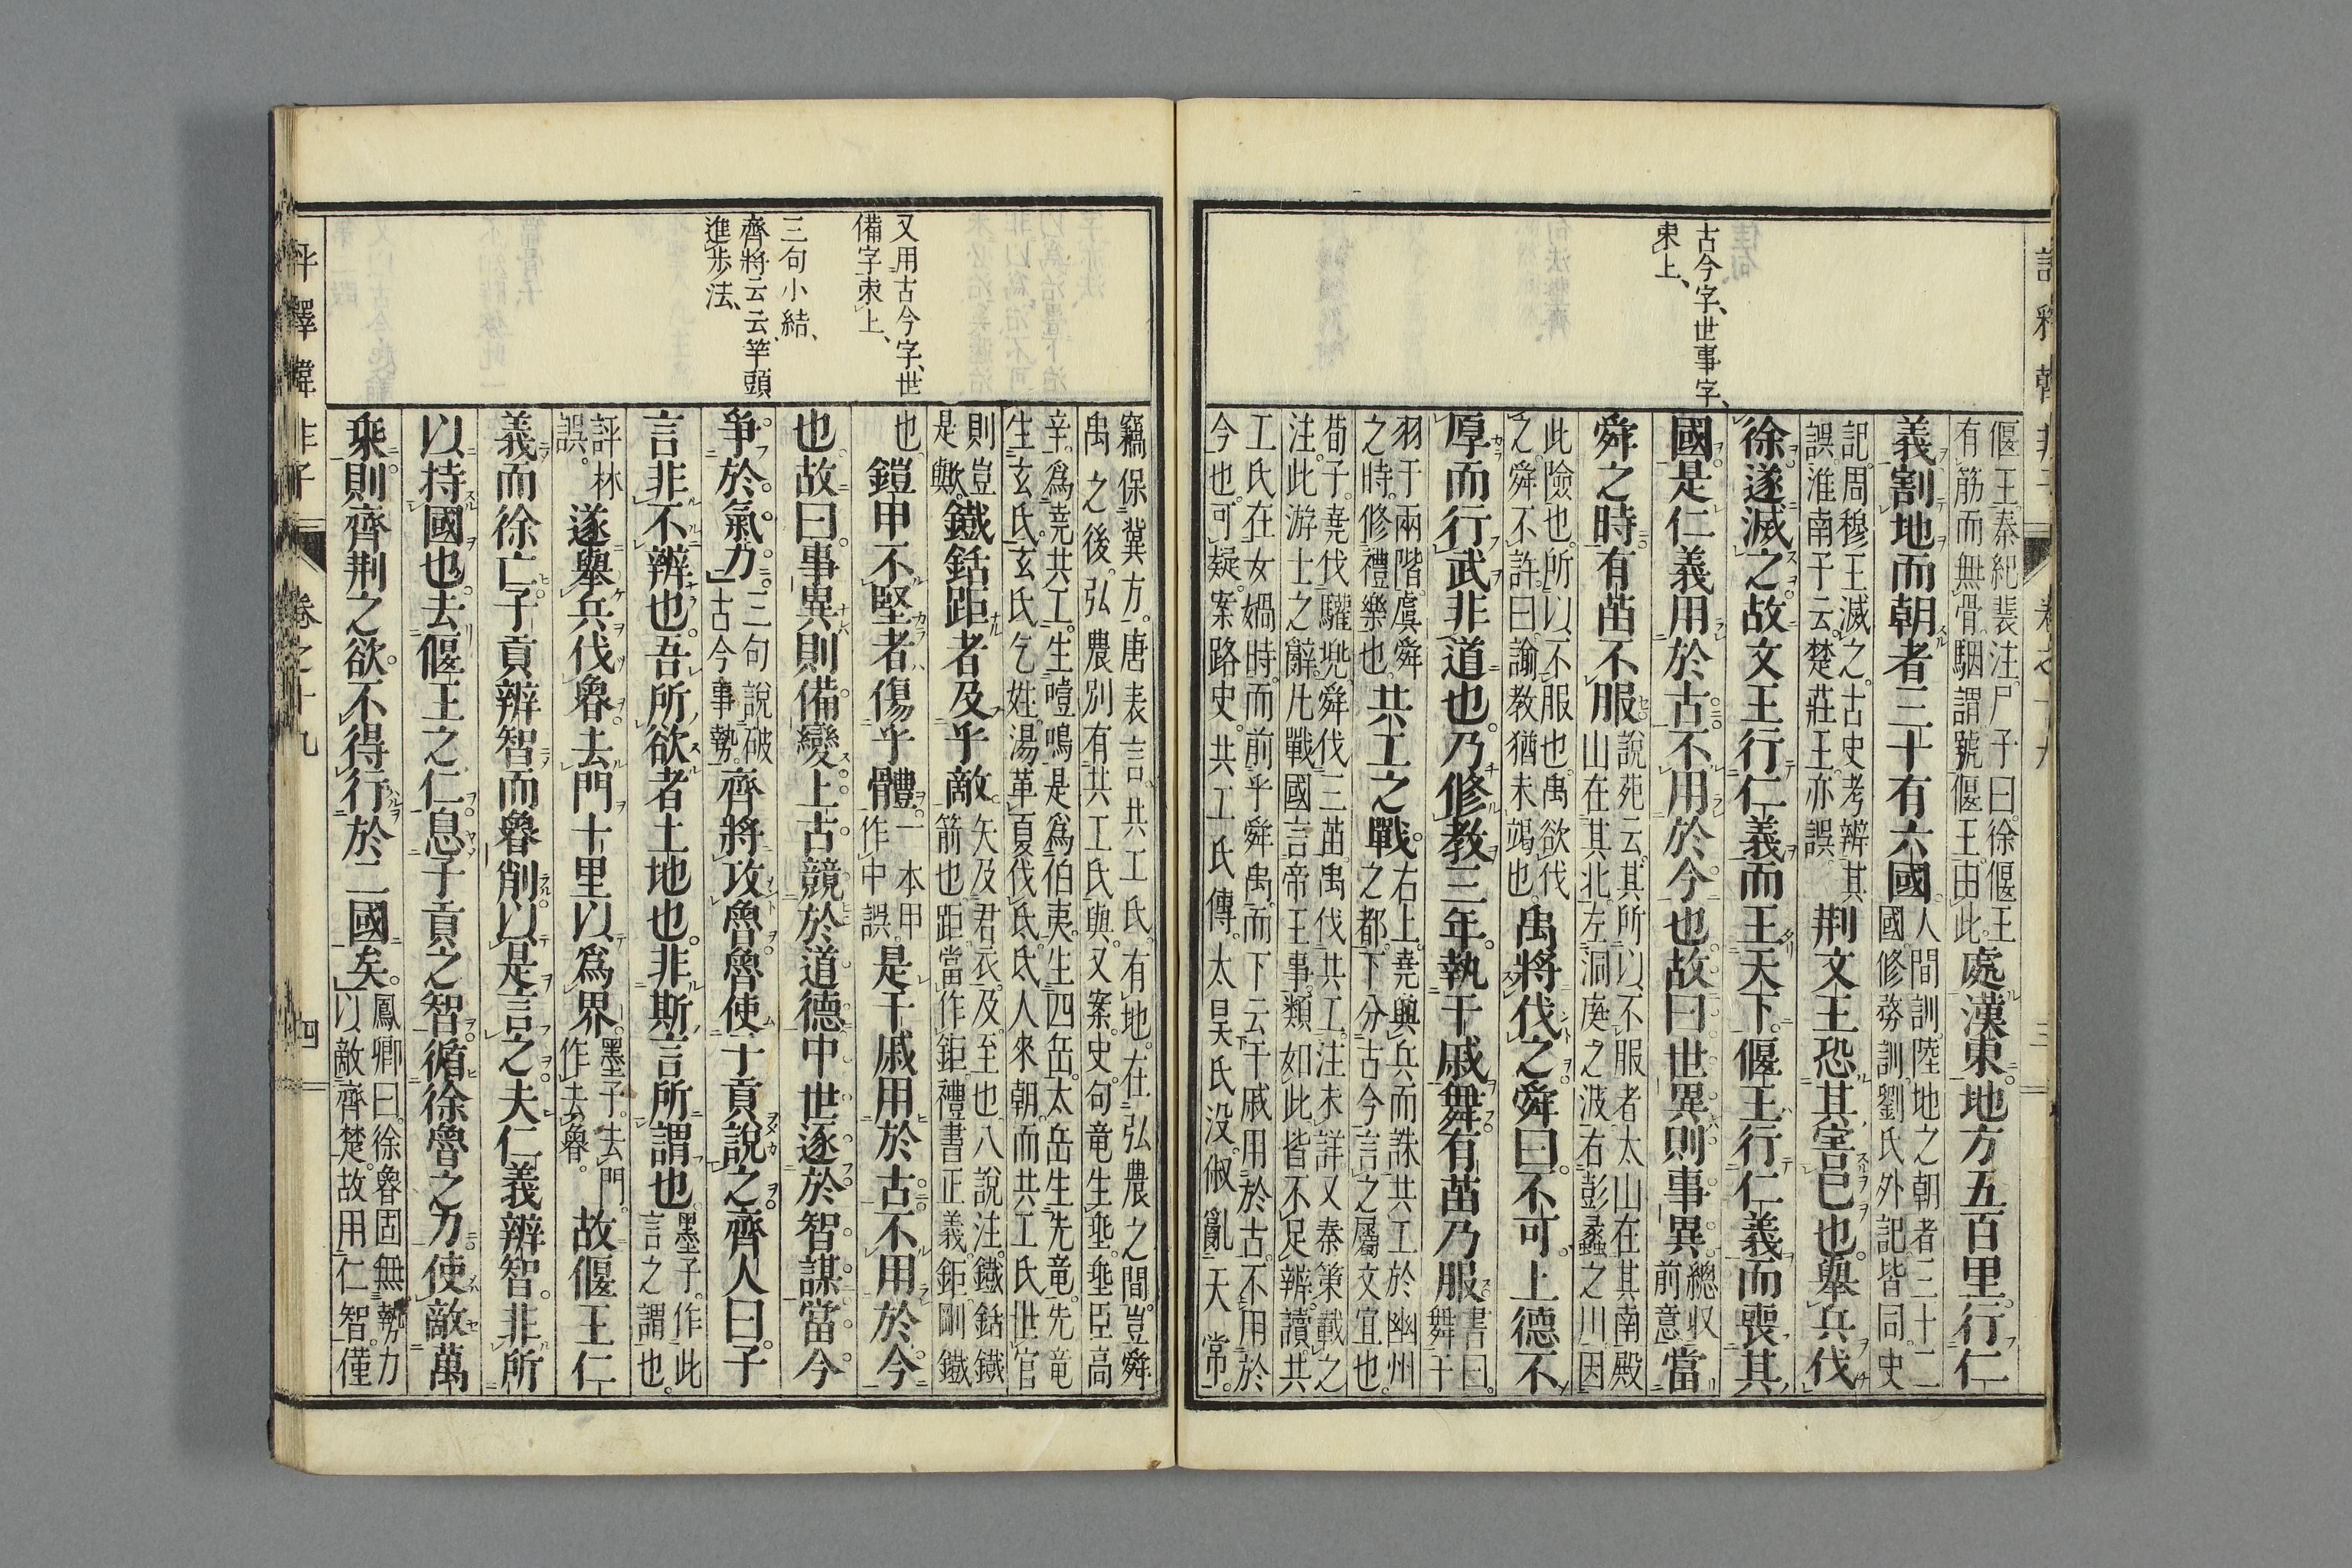 古今字、世事字、
束上、
偃王。秦紀裴注。尸子曰。徐偃王
有筋而無骨。駰謂號偃王。由此。
處漢東。地方五百里。行仁
義割地而朝者三十有六國。
人間訓。陸地之朝者三十二
國。修務訓。劉氏外記。皆同。史
記。周穆王滅之。古史考辨其
誤。淮南子云。楚莊王亦誤。
荆文王恐其害己也。舉兵伐
徐遂滅之。故文王行仁義而王天下。偃王行仁義而喪其
國。是仁義用於古。不用於今也。故曰。世異則事異。
總收
前意
當
舜之時。有苗不服。
說苑云。其所以不服者。太山在其南。殿
山在其北。左洞庭之波。右彭蠡之川。因
此險也。所以不服也。禹欲伐
之。舜不許。曰。諭教猶未竭也。
禹將伐之。舜曰。不可。上德不
厚而行武。非道也。乃修教三年。執干戚舞。有苗乃服。
書曰。
舞干
羽于兩階。虞舜
之時。修禮樂也。
共工之戰。
右上。堯與兵而誅共工於幽州
之都。下分古今言之。屬文宜也。
荀子。堯伐驩兜。舜伐三苗。禹伐共工。注未詳。又秦策載之
注。此游士之辭。凡戰國言帝王事。類如此。皆不足辨。讀共
工氏在女媧時。而前乎舜禹。而下云干戚用於古。不用於
今也。可疑。案路史。共工氏傳。太昊氏没。俶亂天常。
評釋韓非子 卷之十九 三
又用古今字、世
備字束上、
三句小結、
齊將云云、竿頭
進步法、
竊保冀方。唐表言。共工氏。有地。在弘農之間。豈舜
禹之後。弘農別有共工氏與。又案。史。句竜生垂。垂臣高
辛。爲堯共工。生噎鳴。是爲伯夷。生四岳。太岳生先竜。先竜
生玄氏。玄氏乞姓。湯革夏伐氏。氐人來朝。而共工氏世官
則豈
是歟。
鐵銛距者及乎敵。
矢及君衣。及至也。八說注。鐵銛鐵
箭也。距當作鉅。禮書正義。鉅剛鐵
也。
鎧甲不堅者傷乎體。
一本甲
作中誤。
是干戚用於古。不用於今
也。故曰。事異則備變。上古競於道德。中世逐於智謀。當今
爭於氣力。
三句說破
古今事勢。
齊將攻魯。魯使子貢說之。齊人曰。子
言非不辨也。吾所欲者土地也。非斯言所謂也。
墨子。作此
言之謂也。
評林
誤。
遂舉兵伐魯。去門十里以爲界。
墨子。去門。
作去魯。
故偃王仁
義而徐亡。子貢辨智而魯削。以是言之。夫仁義辨智。非所
以持國也。去偃王之仁。息子貢之智。循徐魯之力。使敵萬
乘。則齊荆之欲。不得行於二國矣。
鳳卿曰。徐魯固無勢力
以敵齊楚。故用仁智。僅
評釋韓非子 卷之十九 四